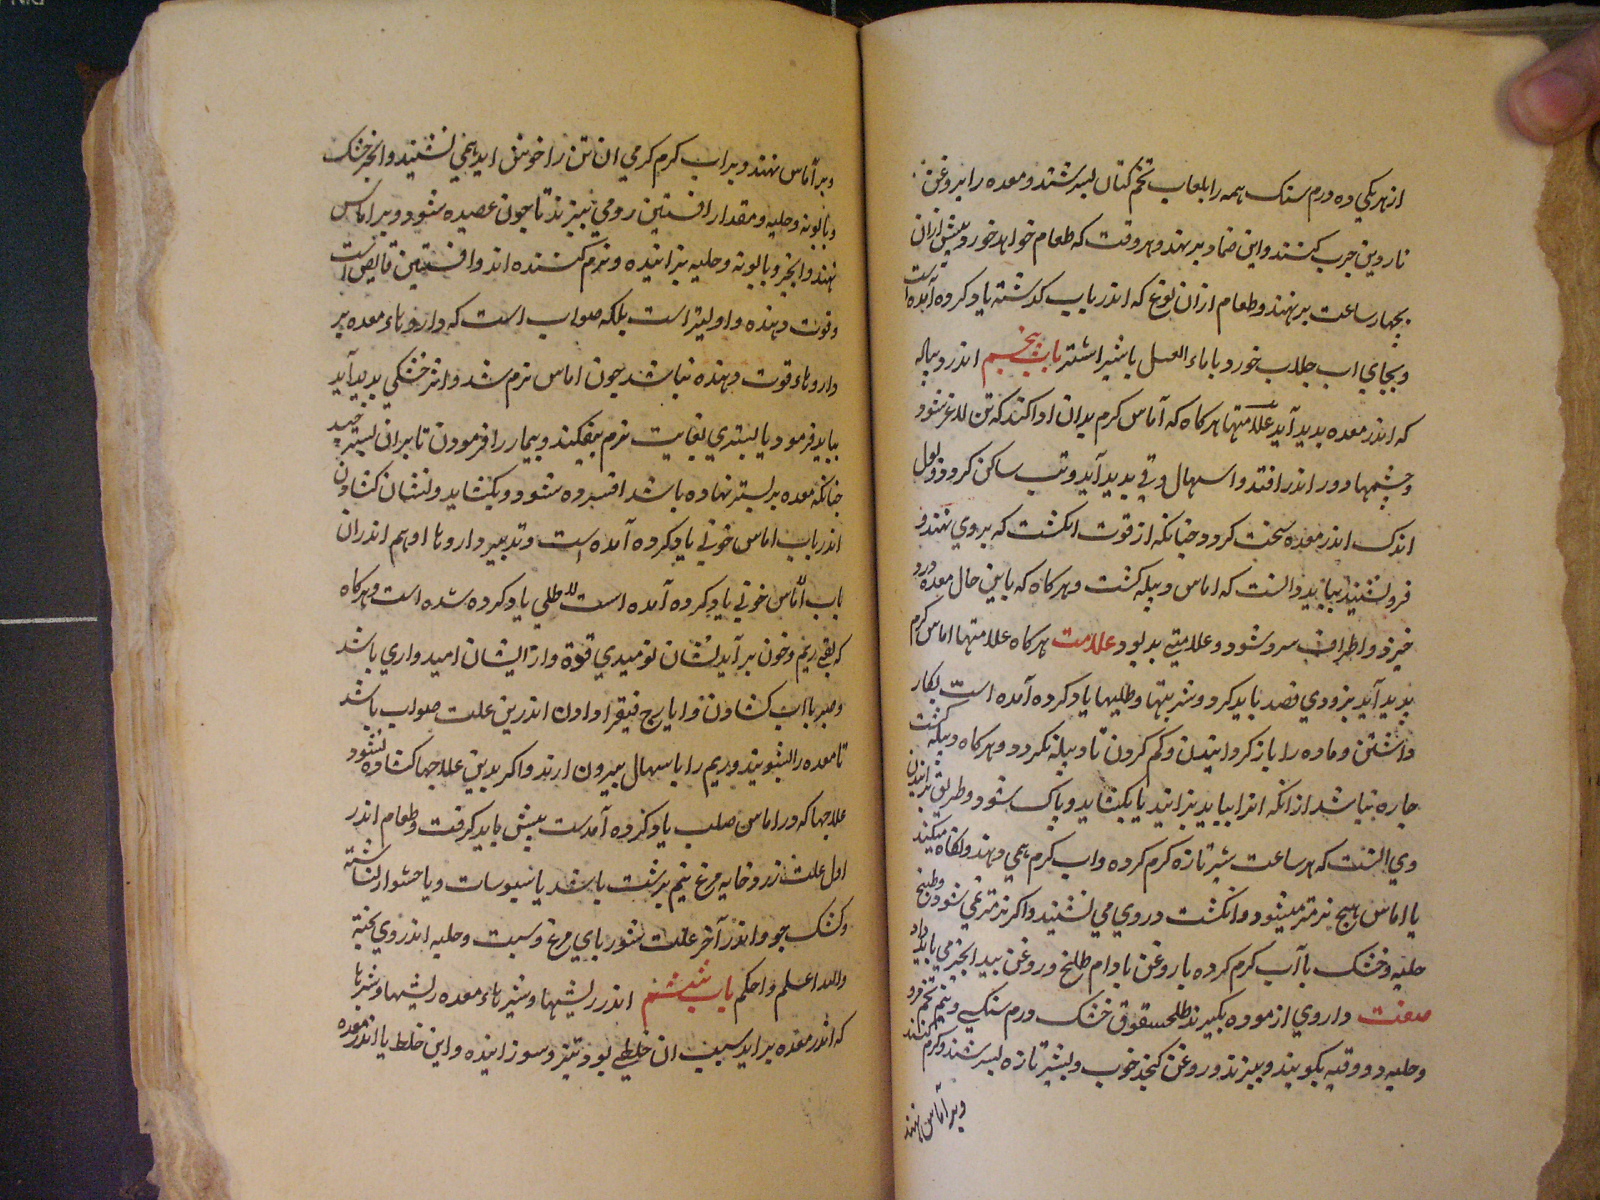 از هریکی ده درم سنک همه را بلعاب تخم کتان بسرشند و معده را بروغن
ناردین جرب کنند و این ضماد برنهند و هر وقت که طعام خواهد خورد بیش ازان
بجهار ساعت برنهند و طعام ازان نوع که اندر باب کذشته یاد کرده آمده است
و بجای اب جلاب خورد با ماء العسل یا شیر اشتر باب پنجم اندر دبیله
که اندر معده بدید آید علامتها هرکاه که آماس کرم بدان ادا کند که تن لاغر شود
و جشمها دور اندر افتد و اسهال و قی بدید آید و تب ساکن کردد و بول
اندک اندر معده سخت کردد جنانکه از قوت انکشت که بروی نهند و
فرو نشیند بباید دانست که اماس دبیله کشت و هرکاه که باین حال معده درد
خیزد و اطراف سرد شود و علامتی بد بود علامت هرکاه علامتها اماس کرم
بدید آید بزودی فصد باید کرد و شربتها و طلیها یاد کرده آمده است بکار
داشتن و ماده را باز کردانیدن و کم کردن تا دبیله نکردد و هرکاه دبیله کشت
جاره نباشد ازانکه انرا بباید بزانید یا بکشاید و پاک شود و طریق بزانیدن
وی انست که هر ساعت شیر تازه کرم کرده و اب کرم همی دهند و نکاه میکنند
تا اماس هیچ نرمتر میشود و انکشت در وی می نشیند و اکر نرمتر نمی شود طبیخ
حلبه و خشک با آب کرم کرده با روغن بادام طلخ و روغن بید انجیر می باید داد
صفت داروی ازموده بکیرند طلحسقوق خشک درم سنکی و نیم تخم مرو
و حلبه دو وقیه بکوبند و ببزند و روغن کنجد خوب و بشیر تازه بسرشند و کرم کنند
و بر اماس نهند
و بر آماس نهند و بر اب کرم کرمی ان تن را خوش اید همی نشیند و انجیر خشک
و بابونه و حلبه و مقدار افسنتین رومی ببزند تا جون عصیده شود و بر اماس
نهند و انجیر و بابونه و حلبه بزاننده و نرم کننده اند و افسنتین قابض است
و قوت دهنده و اولیتر است بلکه صواب است که داروهاء معده بر
داروهاء قوت دهنده نباشد جون اماس نرم شد و اثر خشکی بدید آید
بباید فرمود یا بستری بغایت نرم بیفکند و بیمار را فرمودن تا بران بستر خسپد
جنانکه معده بر بستر نهاده باشد افشرده شود و بکشاید و نشان کشادن
اندر باب اماس خونی یاد کرده آمده است و تدبیر داروها او هم اندران
باب آماس خونی یاد کرده آمده است طلی یاد کرده شده است و هرکاه
که بقی ریم و خون برآید نشان نومیدی قوة و ارد ایشان امیدواری باشد
و صبر با اب کشادن و ایارج فیقرا دادن اندرین علت صواب باشد
تا معده را بشویند و ریم را باسهال بیرون ارند و اکر بدین علاجها کشاده نشود
علاجها که در اماس صلب یاد کرده آمدست بیش باید کرفت و طعام اندر
اول علت زرده خایه مرغ نیم برشت باشد یا سبوسات و یا حشو از نشاسته
و کشک جو و اندر آخر علت شوربای مرغ و سبت و حلبه اندر وی بخته
والله اعلم و احکم باب ششم اندر ریشیها و شیرهاء معده ریشیها و شیرها
که اندر معده براید سبب ان خلطی بود تیز و سوزاننده و این خلط یا اندر معده